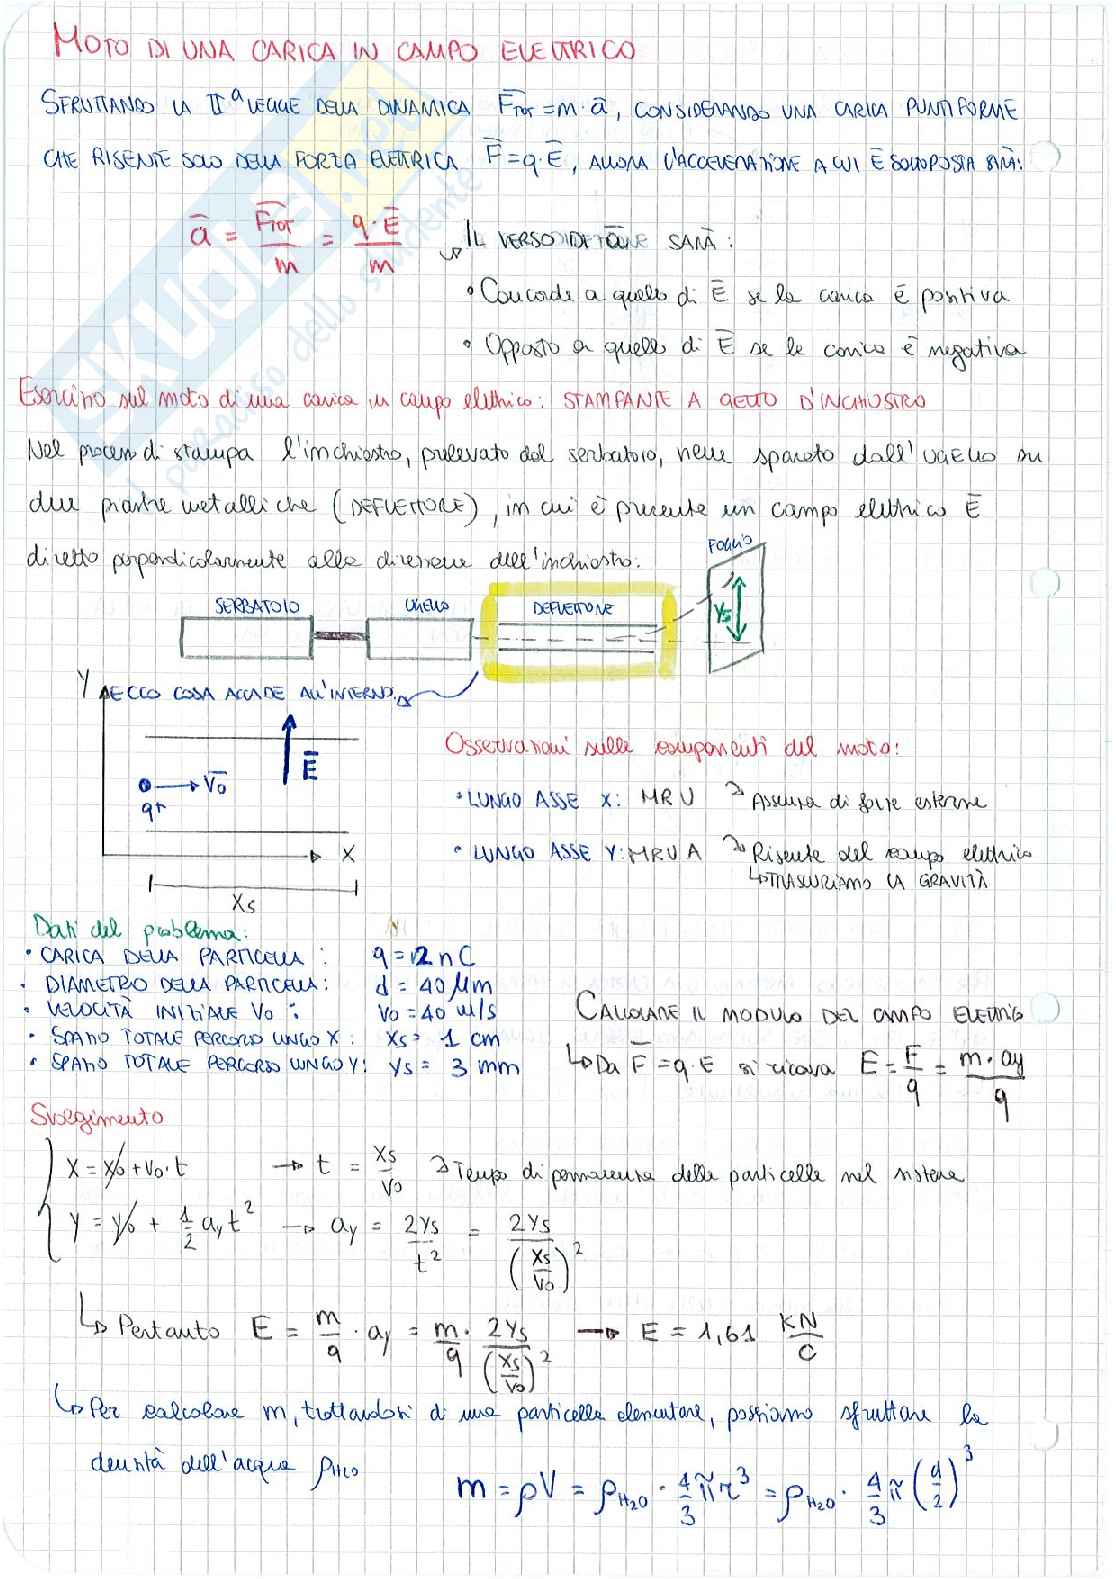 MOTO DI UNA CARICA IN CAMPO ELETTRICO
SFRUTTANDO LA IIª LEGGE DELLA DINAMICA F̄TOT = m·ā, CONSIDERANDO UNA CARICA PUNTIFORME
CHE RISENTE SOLO DELLA FORZA ELETTRICA F̄ = q·Ē, ALLORA L'ACCELERAZIONE A CUI È SOTTOPOSTA SARÀ:
ā = F̄TOT/m = q·Ē/m
↳ IL VERSO DI ā SARÀ:
• Concorde a quello di Ē se la carica è positiva
• Opposto a quello di Ē se la carica è negativa
Esercizio sul moto di una carica in campo elettrico: STAMPANTE A GETTO D'INCHIOSTRO
Nel processo di stampa l'inchiostro, prelevato dal serbatoio, viene sparato dall'UGELLO su
due piastre metalliche (DEFLETTORE), in cui è presente un campo elettrico Ē
diretto perpendicolarmente alla direzione dell'inchiostro.
FOGLIO
SERBATOIO UGELLO DEFLETTORE
Ys
Y ECCO COSA ACCADE ALL'INTERNO
Ē
V̄0
q+
X
Xs
Osservazioni sulle componenti del moto:
• LUNGO ASSE X: MRU → Assenza di forze esterne
• LUNGO ASSE Y: MRUA → Risente del campo elettrico
↳ TRASCURIAMO LA GRAVITÀ
Dati del problema:
• CARICA DELLA PARTICELLA: q = 2 nC
• DIAMETRO DELLA PARTICELLA: d = 40 μm
• VELOCITÀ INIZIALE V0: V0 = 40 m/s
• SPAZIO TOTALE PERCORSO LUNGO X: Xs = 1 cm
• SPAZIO TOTALE PERCORSO LUNGO Y: Ys = 3 mm
CALCOLARE IL MODULO DEL CAMPO ELETTRICO
↳ Da F̄ = q·E si ricava E = F/q = m·ay/q
Svolgimento
X = X0 + V0·t → t = Xs/V0 → Tempo di permanenza della particella nel sistema
Y = Y0 + 1/2 ay t² → ay = 2Ys/t² = 2Ys/(Xs/V0)²
↳ Pertanto E = m/q · ay = m/q · 2Ys/(Xs/V0)² → E = 1,61 KN/C
↳ Per calcolare m, trattandosi di una particella elementare, possiamo sfruttare la
densità dell'acqua ρH2O
m = ρV = ρH2O · 4/3 π r³ = ρH2O · 4/3 π (d/2)³